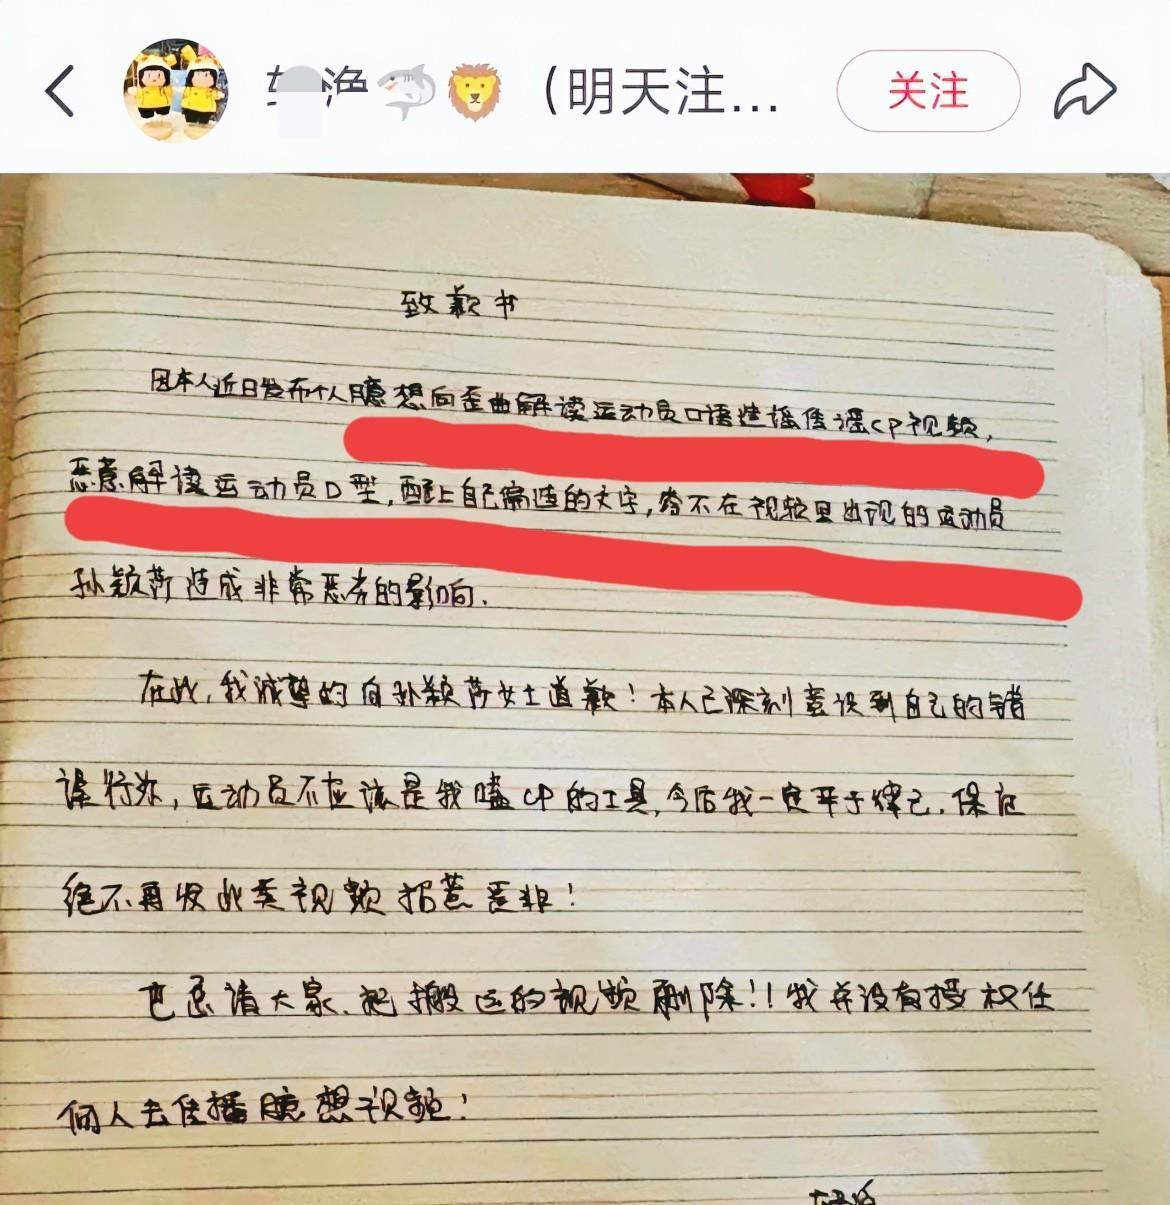 渔🦈🦁（明天注... 关注
致歉书
因本人近日发布个人臆想向歪曲解读运动员口语造谣传谣CP视频，
恶意解读运动员口型，配上自己编造的文字，给不在视频里出现的运动员
孙颖莎造成非常恶劣的影响．
在此，我诚恳的向孙颖莎女士道歉！本人已深刻意识到自己的错
误行为，运动员不应该是我嗑CP的工具，今后我一定严于律己．保证
绝不再发此类视频招惹是非！
也恳请大家、把搬运的视频删除！！我并没有授权任
何人去传播臆想视频！